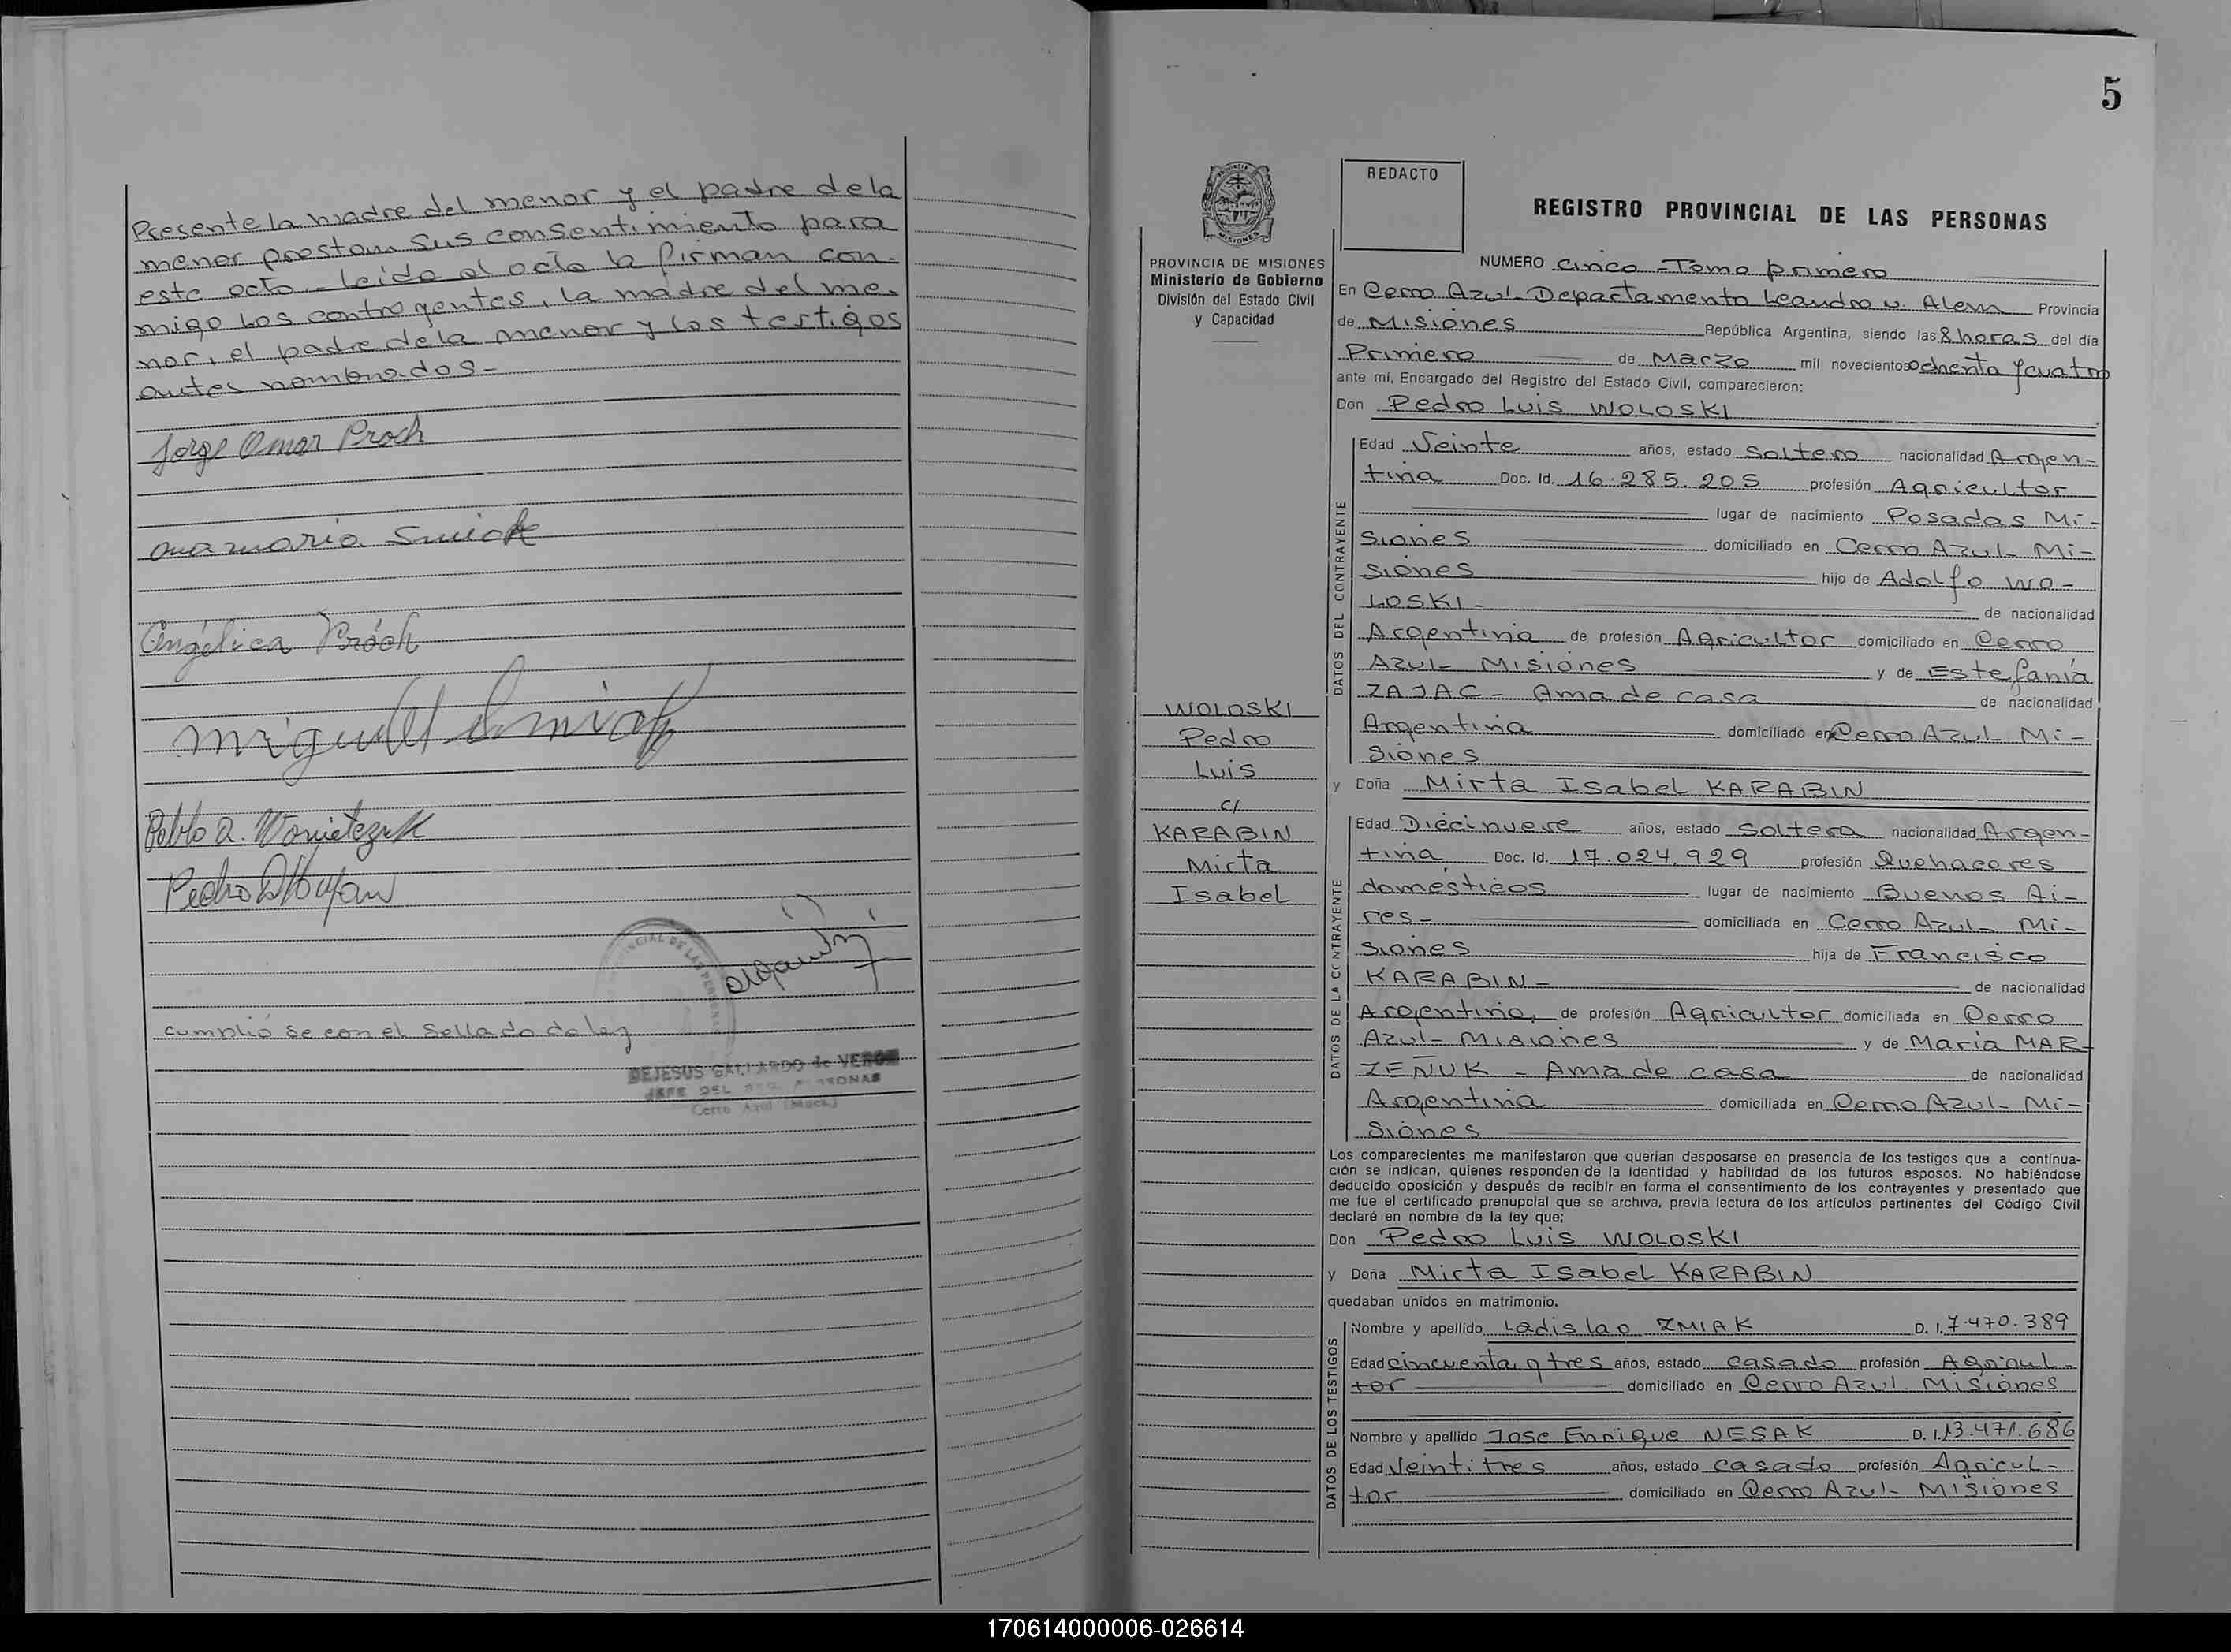 Presente la madre del menor y el padre de la
menor prestan sus consentimiento para
este acto - Leida el acta la firman con-
migo los contrayentes, la madre del me-
nor, el padre de la menor y los testigos
antes nombrados -
Jorge Omar Proch
Ana maria Smiak
Angélica Proch
Miguel Smiak
Pedro
cumplió se con el Sellado de ley
DEJESUS GALLARDO de VERON
JEFE DEL REG. PERSONAS
Cerro Azul (Mnes.)
5
PROVINCIA DE MISIONES
Ministerio de Gobierno
División del Estado Civil
y Capacidad
WOLOSKI
Pedro
Luis
c/
KARABIN
Mirta
Isabel
REDACTO
REGISTRO PROVINCIAL DE LAS PERSONAS
NUMERO cinco - Tomo primero
En Cerro Azul - Departamento Leandro N. Alem Provincia
de Misiones República Argentina, siendo las 8 horas del día
Primero de Marzo mil novecientos ochenta y cuatro
ante mí, Encargado del Registro del Estado Civil, comparecieron:
Don Pedro Luis WOLOSKI
DATOS DEL CONTRAYENTE
Edad Veinte años, estado soltero nacionalidad Argen-
tina Doc. Id. 16.285.205 profesión Agricultor
lugar de nacimiento Posadas Mi-
siones domiciliado en Cerro Azul - Mi-
siones hijo de Adolfo WO-
LOSKI - de nacionalidad
Argentina de profesión Agricultor domiciliado en Cerro
Azul - Misiones y de Estefania
ZAJAC - Ama de casa de nacionalidad
Argentina domiciliado en Cerro Azul - Mi-
siones
y Doña Mirta Isabel KARABIN
DATOS DE LA CONTRAYENTE
Edad Diecinueve años, estado soltera nacionalidad Argen-
tina Doc. Id. 17.024.929 profesión Quehaceres
domésticos lugar de nacimiento Buenos Ai-
res - domiciliada en Cerro Azul - Mi-
siones hija de Francisco
KARABIN - de nacionalidad
Argentina, de profesión Agricultor domiciliada en Cerro
Azul - Misiones y de Maria MAR-
ZEÑUK - Ama de casa de nacionalidad
Argentina domiciliada en Cerro Azul - Mi-
siones
Los comparecientes me manifestaron que querían desposarse en presencia de los testigos que a continua-
ción se indican, quienes responden de la identidad y habilidad de los futuros esposos. No habiéndose
deducido oposición y después de recibir en forma el consentimiento de los contrayentes y presentado que
me fue el certificado prenupcial que se archiva, previa lectura de los artículos pertinentes del Código Civil
declaré en nombre de la ley que:
Don Pedro Luis WOLOSKI
y Doña Mirta Isabel KARABIN
quedaban unidos en matrimonio.
DATOS DE LOS TESTIGOS
Nombre y apellido Ladislao ZMIAK D. I. 7.470.389
Edad cincuenta y tres años, estado casado profesión Agricul-
tor domiciliado en Cerro Azul. Misiones
Nombre y apellido Jose Enrique NESAK D. I. 13.471.686
Edad Veintitres años, estado casado profesión Agricul-
tor domiciliado en Cerro Azul - Misiones
170614000006-026614